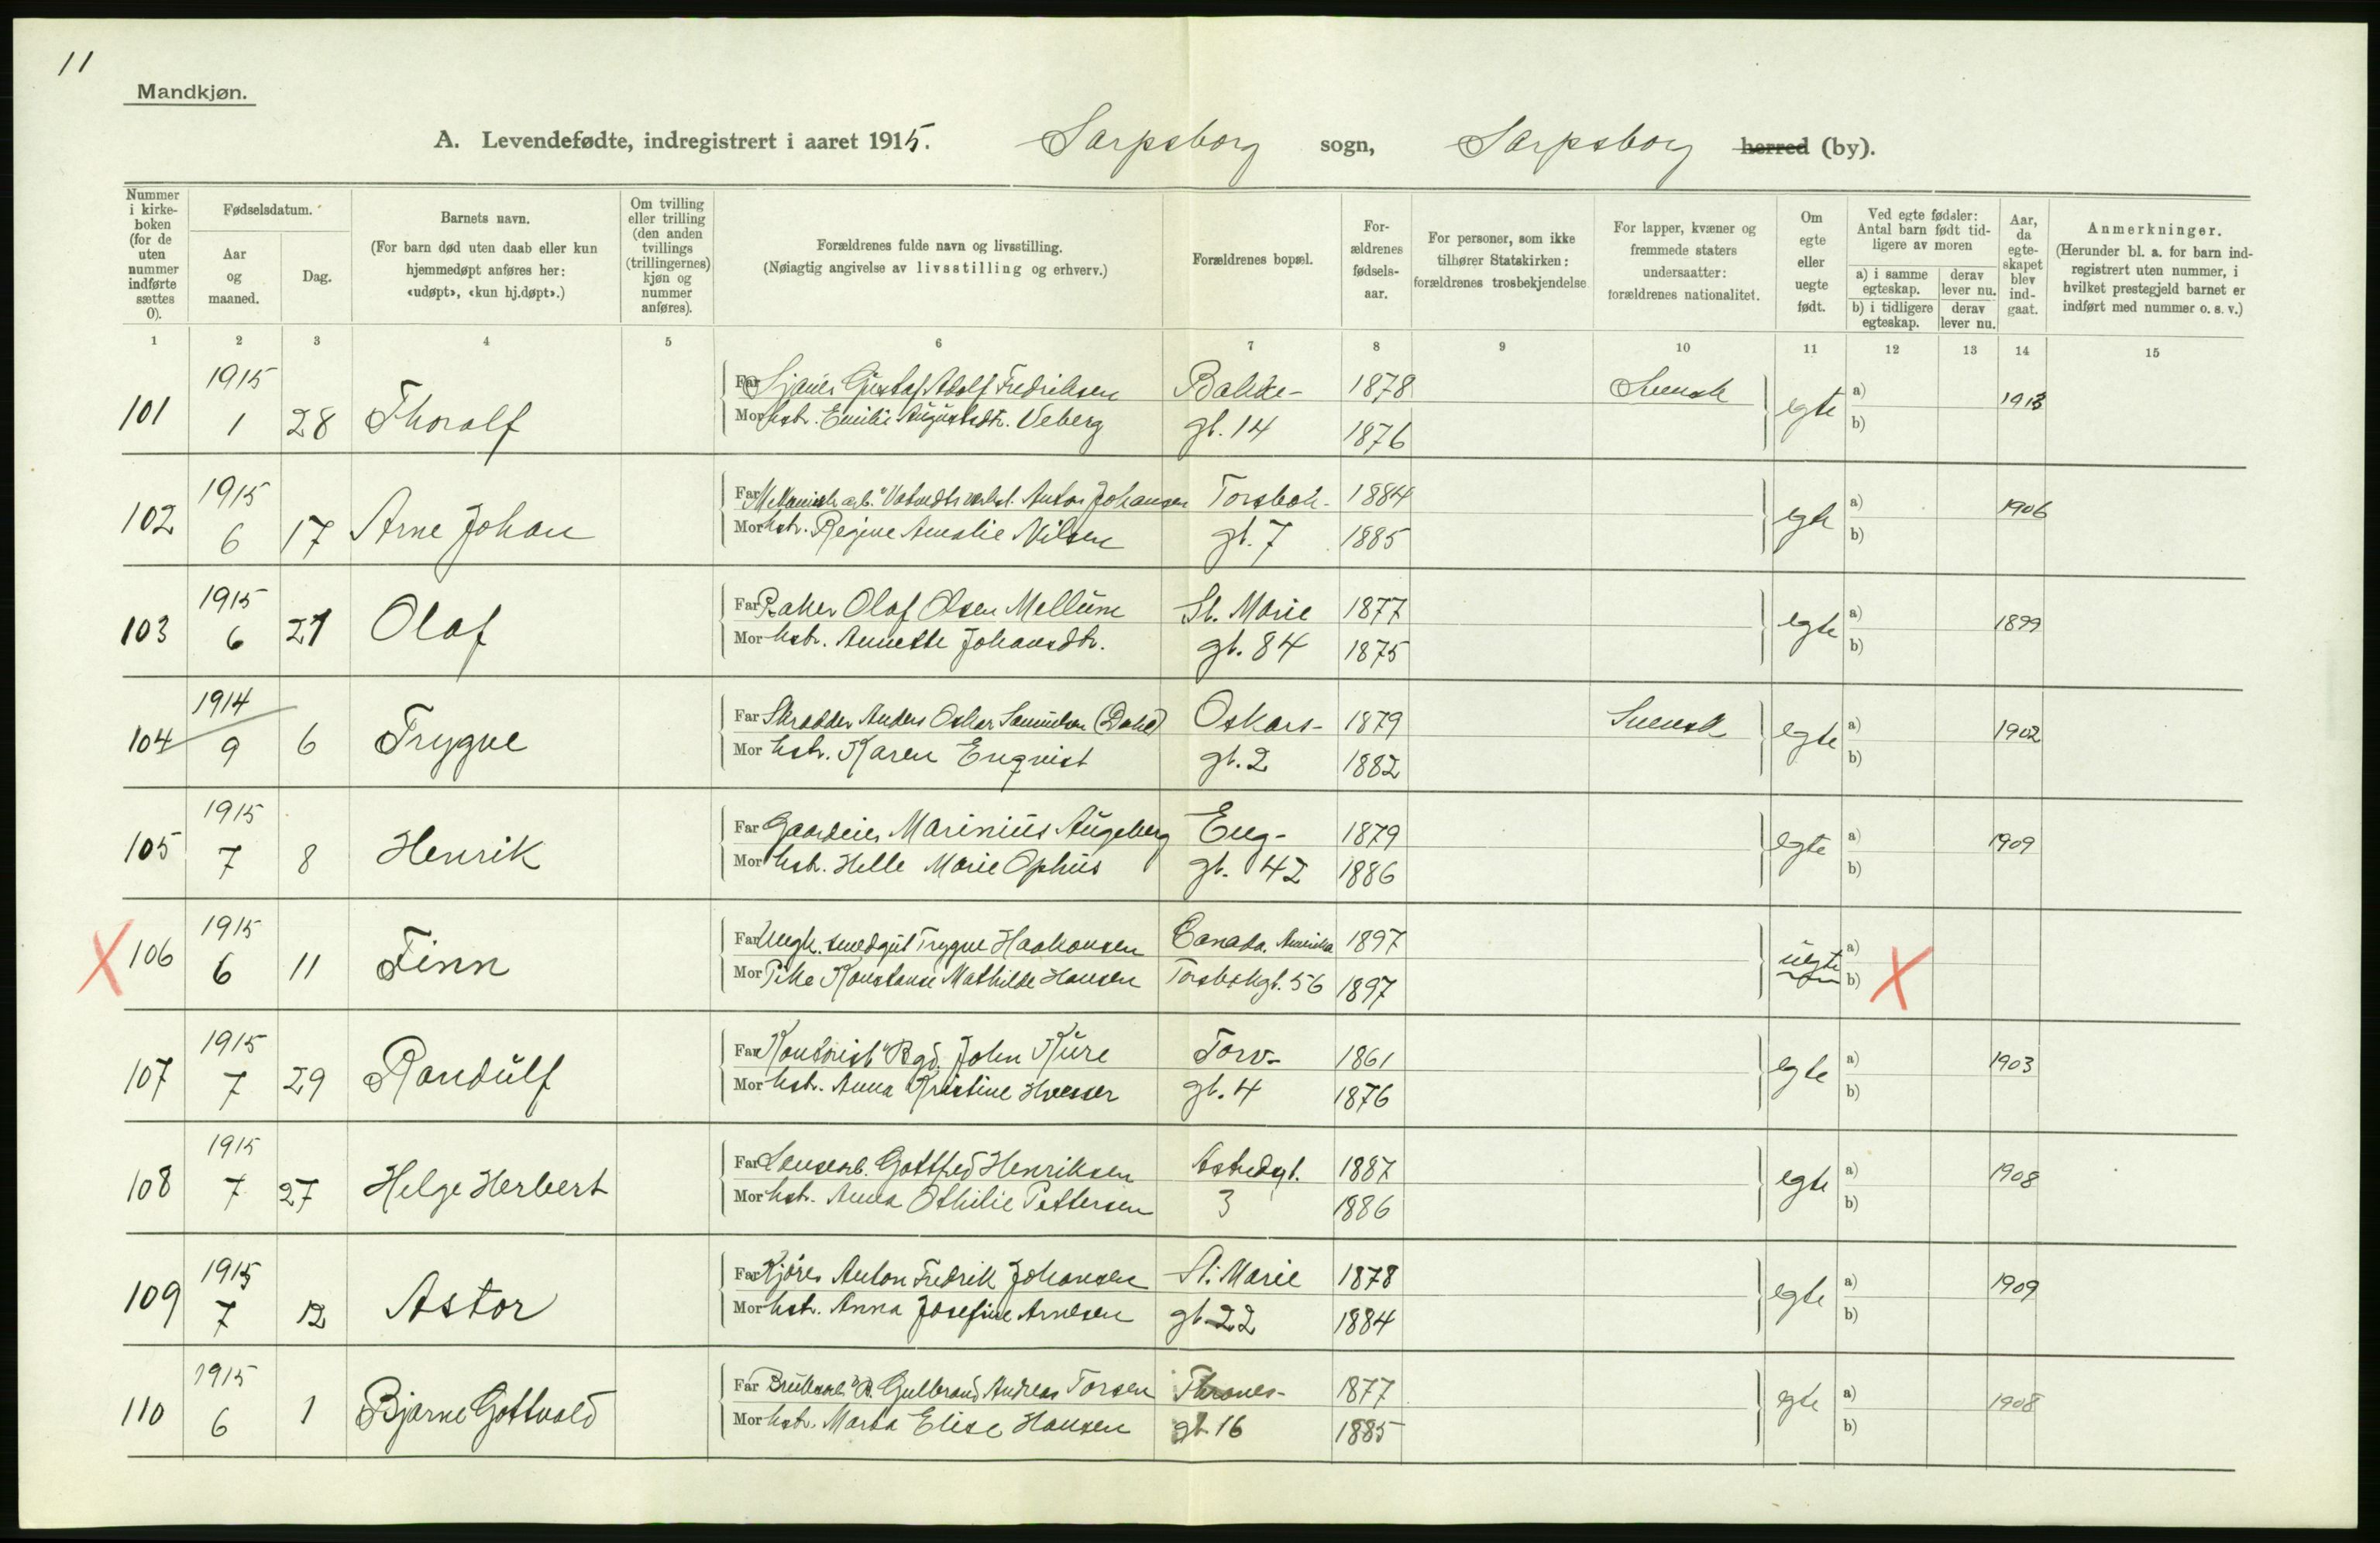 11
Mandkjøn.
A. Levendefødte, indregistrert i aaret 1915. Sarpsborg sogn, Sarpsborg herred (by).
Nummer i kirkeboken (for de uten nummer indførte sættes 0).
Fødselsdatum.
Aar og maaned.
Dag.
Barnets navn.
(For barn død uten daab eller kun hjemmedøpt anføres her: «udøpt», «kun hj.døpt».)
Om tvilling eller trilling (den anden tvillings (trillingernes) kjøn og nummer anføres).
Forældrenes fulde navn og livsstilling.
(Nøiagtig angivelse av livsstilling og erhverv.)
Forældrenes bopæl.
Forældrenes fødselsaar.
For personer, som ikke tilhører Statskirken: forældrenes trosbekjendelse
For lapper, kvæner og fremmede staters undersaatter: forældrenes nationalitet.
Om egte eller uegte født.
Ved egte fødsler: Antal barn født tidligere av moren
a) i samme egteskap. derav lever nu.
b) i tidligere egteskap. derav lever nu.
Aar, da egteskapet blev indgaat.
Anmerkninger.
(Herunder bl. a. for barn indregistrert uten nummer, i hvilket prestegjeld barnet er indført med nummer o. s. v.)
1 2 3 4 5 6 7 8 9 10 11 12 13 14 15
1915 Far Gustaf Adolf Fredriksen Bakke- 1878 Svensk
101 1 28 Thoralf egte a) b) 1913
Mor hstr. Emilie Augustsdtr. Veberg gt. 14 1876
1915 Far Mekanisk arb. Anton Johansen Torsbek- 1884
102 6 17 Arne Johan egte a) b) 1906
Mor hstr. Regine Amalie Nilsen gt. 7 1885
1915 Far Olaf Olsen Mellum St. Marie 1877
103 6 27 Olaf egte a) b) 1899
Mor hstr. Annette Johansdtr. gt. 84 1875
1914 Far Skrædder Anders Oskar Samuelsen Oskars- 1879 Svensk
104 9 6 Trygve egte a) b) 1902
Mor hstr. Karen Enqvist gt. 2 1882
1915 Far Gaardeier Marinius Augeberg Eng- 1879
105 7 8 Henrik egte a) b) 1909
Mor hstr. Helle Marie Ophus gt. 42 1886
1915 Far Ungk. smedgut Trygve Haakonsen Canada. Amerika 1897
X 106 6 11 Finn uegte a) b) X
Mor Pike Konstanse Mathilde Hansen Torsbekgt. 56 1897
1915 Far Kontorist Bgd. John Kure Torv- 1861
107 7 29 Randulf egte a) b) 1903
Mor hstr. Anna Kristine Hvesser gt. 4 1876
1915 Far Gottfred Henriksen Astridgt. 1887
108 7 27 Helge Herbert egte a) b) 1908
Mor hstr. Anna Othilie Pettersen 3 1886
1915 Far Kjører Anton Fredrik Johansen St. Marie 1878
109 7 12 Astor egte a) b) 1909
Mor hstr. Anna Josefine Arnesen gt. 22 1884
1915 Far Gulbrand Andreas Torsen Thranes- 1877
110 6 1 Bjarne Gottvald egte a) b) 1908
Mor hstr. Marta Elise Hansen gt. 16 1885